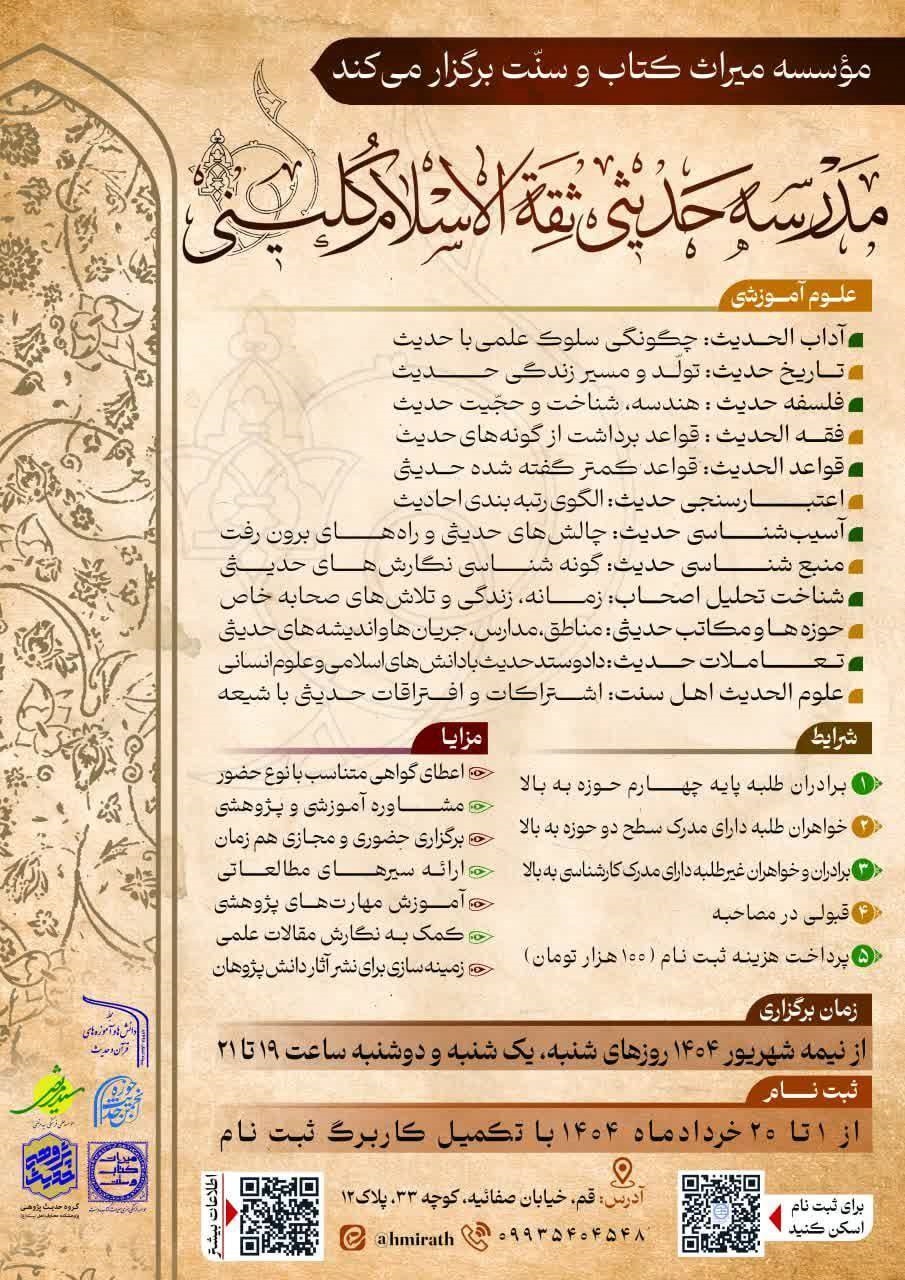 مؤسسه میراث کتاب و سنّت برگزار می‌کند
مَدرسه حَدیثی ثِقَة الاسلام کُلینی
علـوم آمـوزشی
آداب الحـدیث: چگونگی سلوک علمی با حدیث
تـاریخ حدیث: تولّـد و مسیر زندگی حـدیث
فلسفه حدیث : هندسه، شناخت و حجّیت حدیث
فقـه الحدیث : قواعد برداشت از گونه‌های حدیث
قواعد الحدیث: قواعد کمتر گفته شده حدیثی
اعتبـارسنجی حدیث: الگوی رتبه بندی احادیث
آسیب‌شنـاسی حدیث: چالش‌های حدیثی و راه‌هـای برون رفت
منبع شنـاسی حدیث: گونه شناسی نگارش‌هـای حدیـثی
شناخت تحلیل اصحـاب: زمـانه، زندگی و تلاش‌های صحابه خاص
حوزه ها و مکاتب حدیثی: مناطق، مدارس، جریان‌ها و اندیشه‌های حدیثی
تـعـامـلات حـدیث: دادوستد حدیث با دانش‌های اسلامی و علوم انسانی
علوم الحدیث اهـل سنت: اشتراکات و افـتراقات حدیثی با شیعه
شرایط
۱ برادران طلبه پایه چهـارم حـوزه به بالا
۲ خواهران طلبه دارای مدرک سطح دو حوزه به بالا
۳ برادران و خواهران غیرطلبه دارای مدرک کارشناسی به بالا
۴ قبولی در مصاحبه
۵ پرداخت هزینه ثبت نام (۱۰۰ هزار تومان)
مزایـا
اعطای گواهی متناسب با نوع حضور
مشـاوره آمـوزشی و پـژوهشی
برگزاری حضوری و مجازی هم زمان
ارائـه سیرهـای مطالعـاتی
آمـوزش مهارت‌هـای پژوهشی
کمک به نگارش مقالات علمی
زمینه‌سازی برای نشر آثار دانش پژوهان
زمان برگزاری
از نیمه شهریور ۱۴۰۴ روزهای شنبه، یک شنبه و دوشنبه ساعت ۱۹ تا ۲۱
ثبت نـام
از ۱ تا ۲۰ خردادماه ۱۴۰۴ با تکمیل کاربرگ ثبت نام
برای ثبت نام
اسکن کنید
آدرس: قم، خیابان صفائیه، کوچه ۳۳، پلاک۱۲
۰۹۹۳۵۴۰۴۵۴۸
@hmirath
اطلاعات بیشتر
مجله
دانش‌ها و آموزه‌های
قرآن و حدیث
انجمن حدیث حوزه
حدیث پژوهی
گروه حدیث پژوهی
میراث
کتاب
و سنت